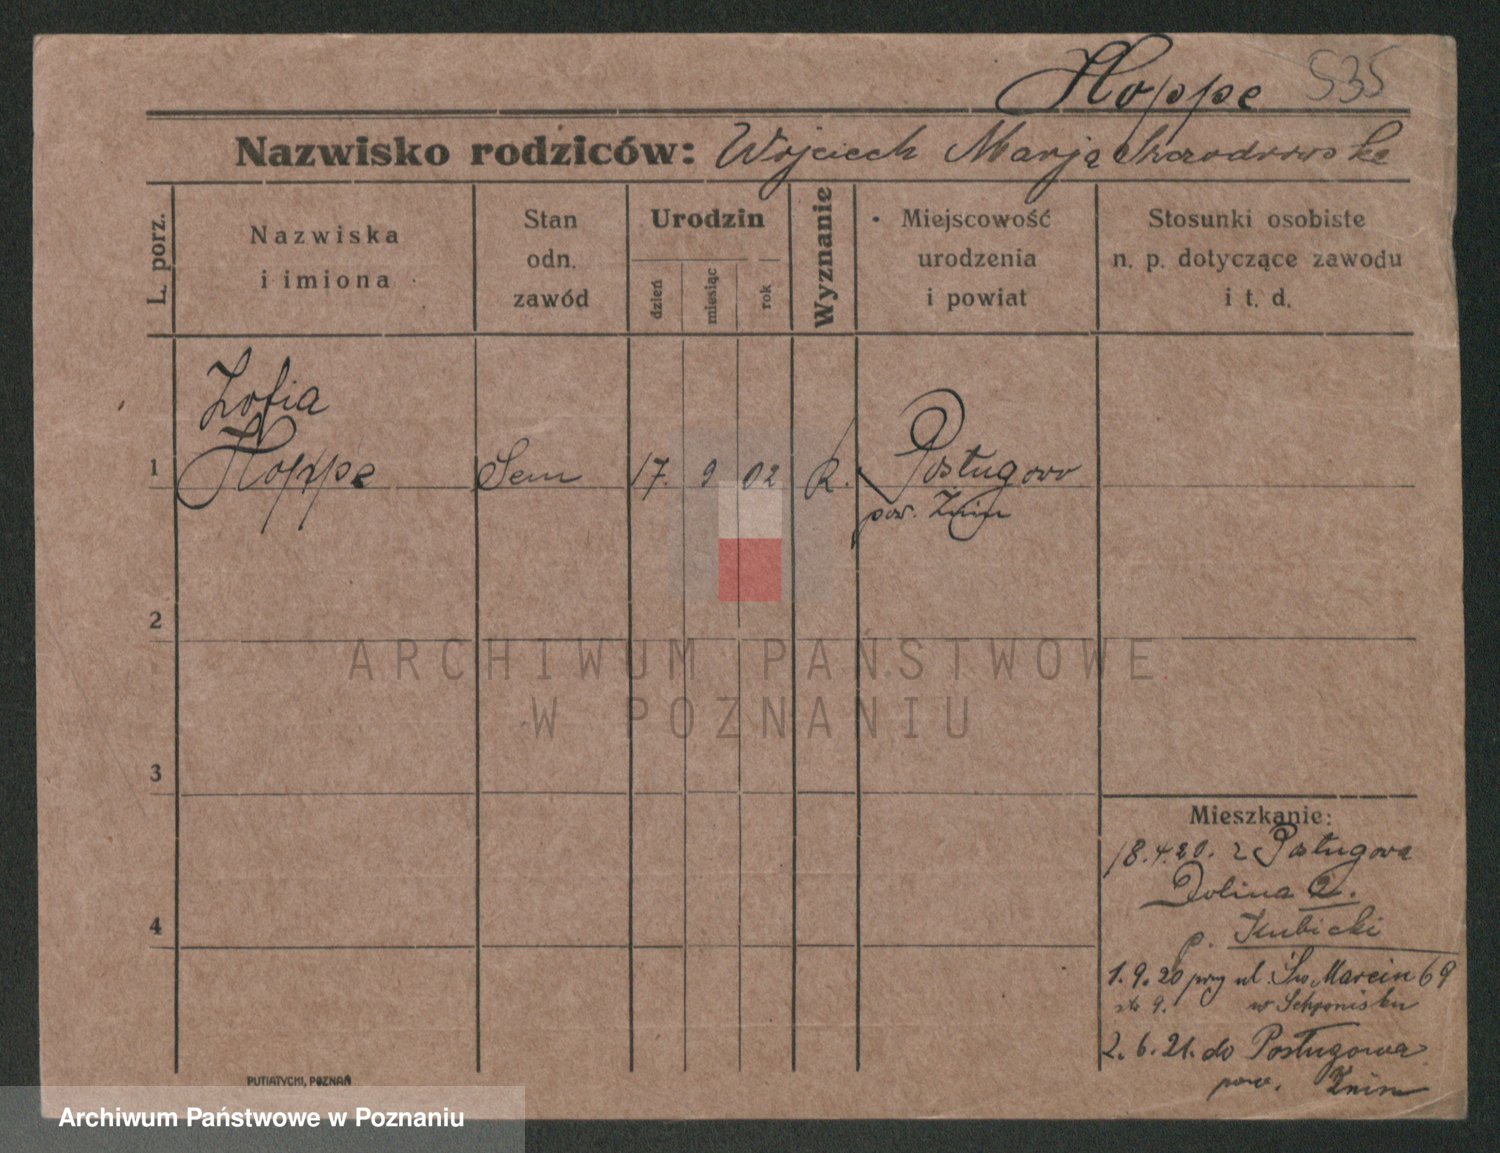 Hoppe 535
Nazwisko rodziców: Wojciech Marja
L. porz.
Nazwiska
i imiona
Stan
odn.
zawód
Urodzin
dzień
miesiąc
rok
Wyznanie
Miejscowość
urodzenia
i powiat
Stosunki osobiste
n. p. dotyczące zawodu
i t. d.
Zofia
1 Hoppe Sem 17. 9 02 R. Posługowo
pow. Żnin
2
ARCHIWUM PAŃSTWOWE
W POZNANIU
3
Mieszkanie:
18.4.20. z Posługowa
Dolina 2.
p. Kubicki
4
1.9.20 przy ul. Św. Marcin 69
w Schronisku
2.6.21. do Posługowa
pow. Żnin
PUTIATYCKI, POZNAŃ
Archiwum Państwowe w Poznaniu